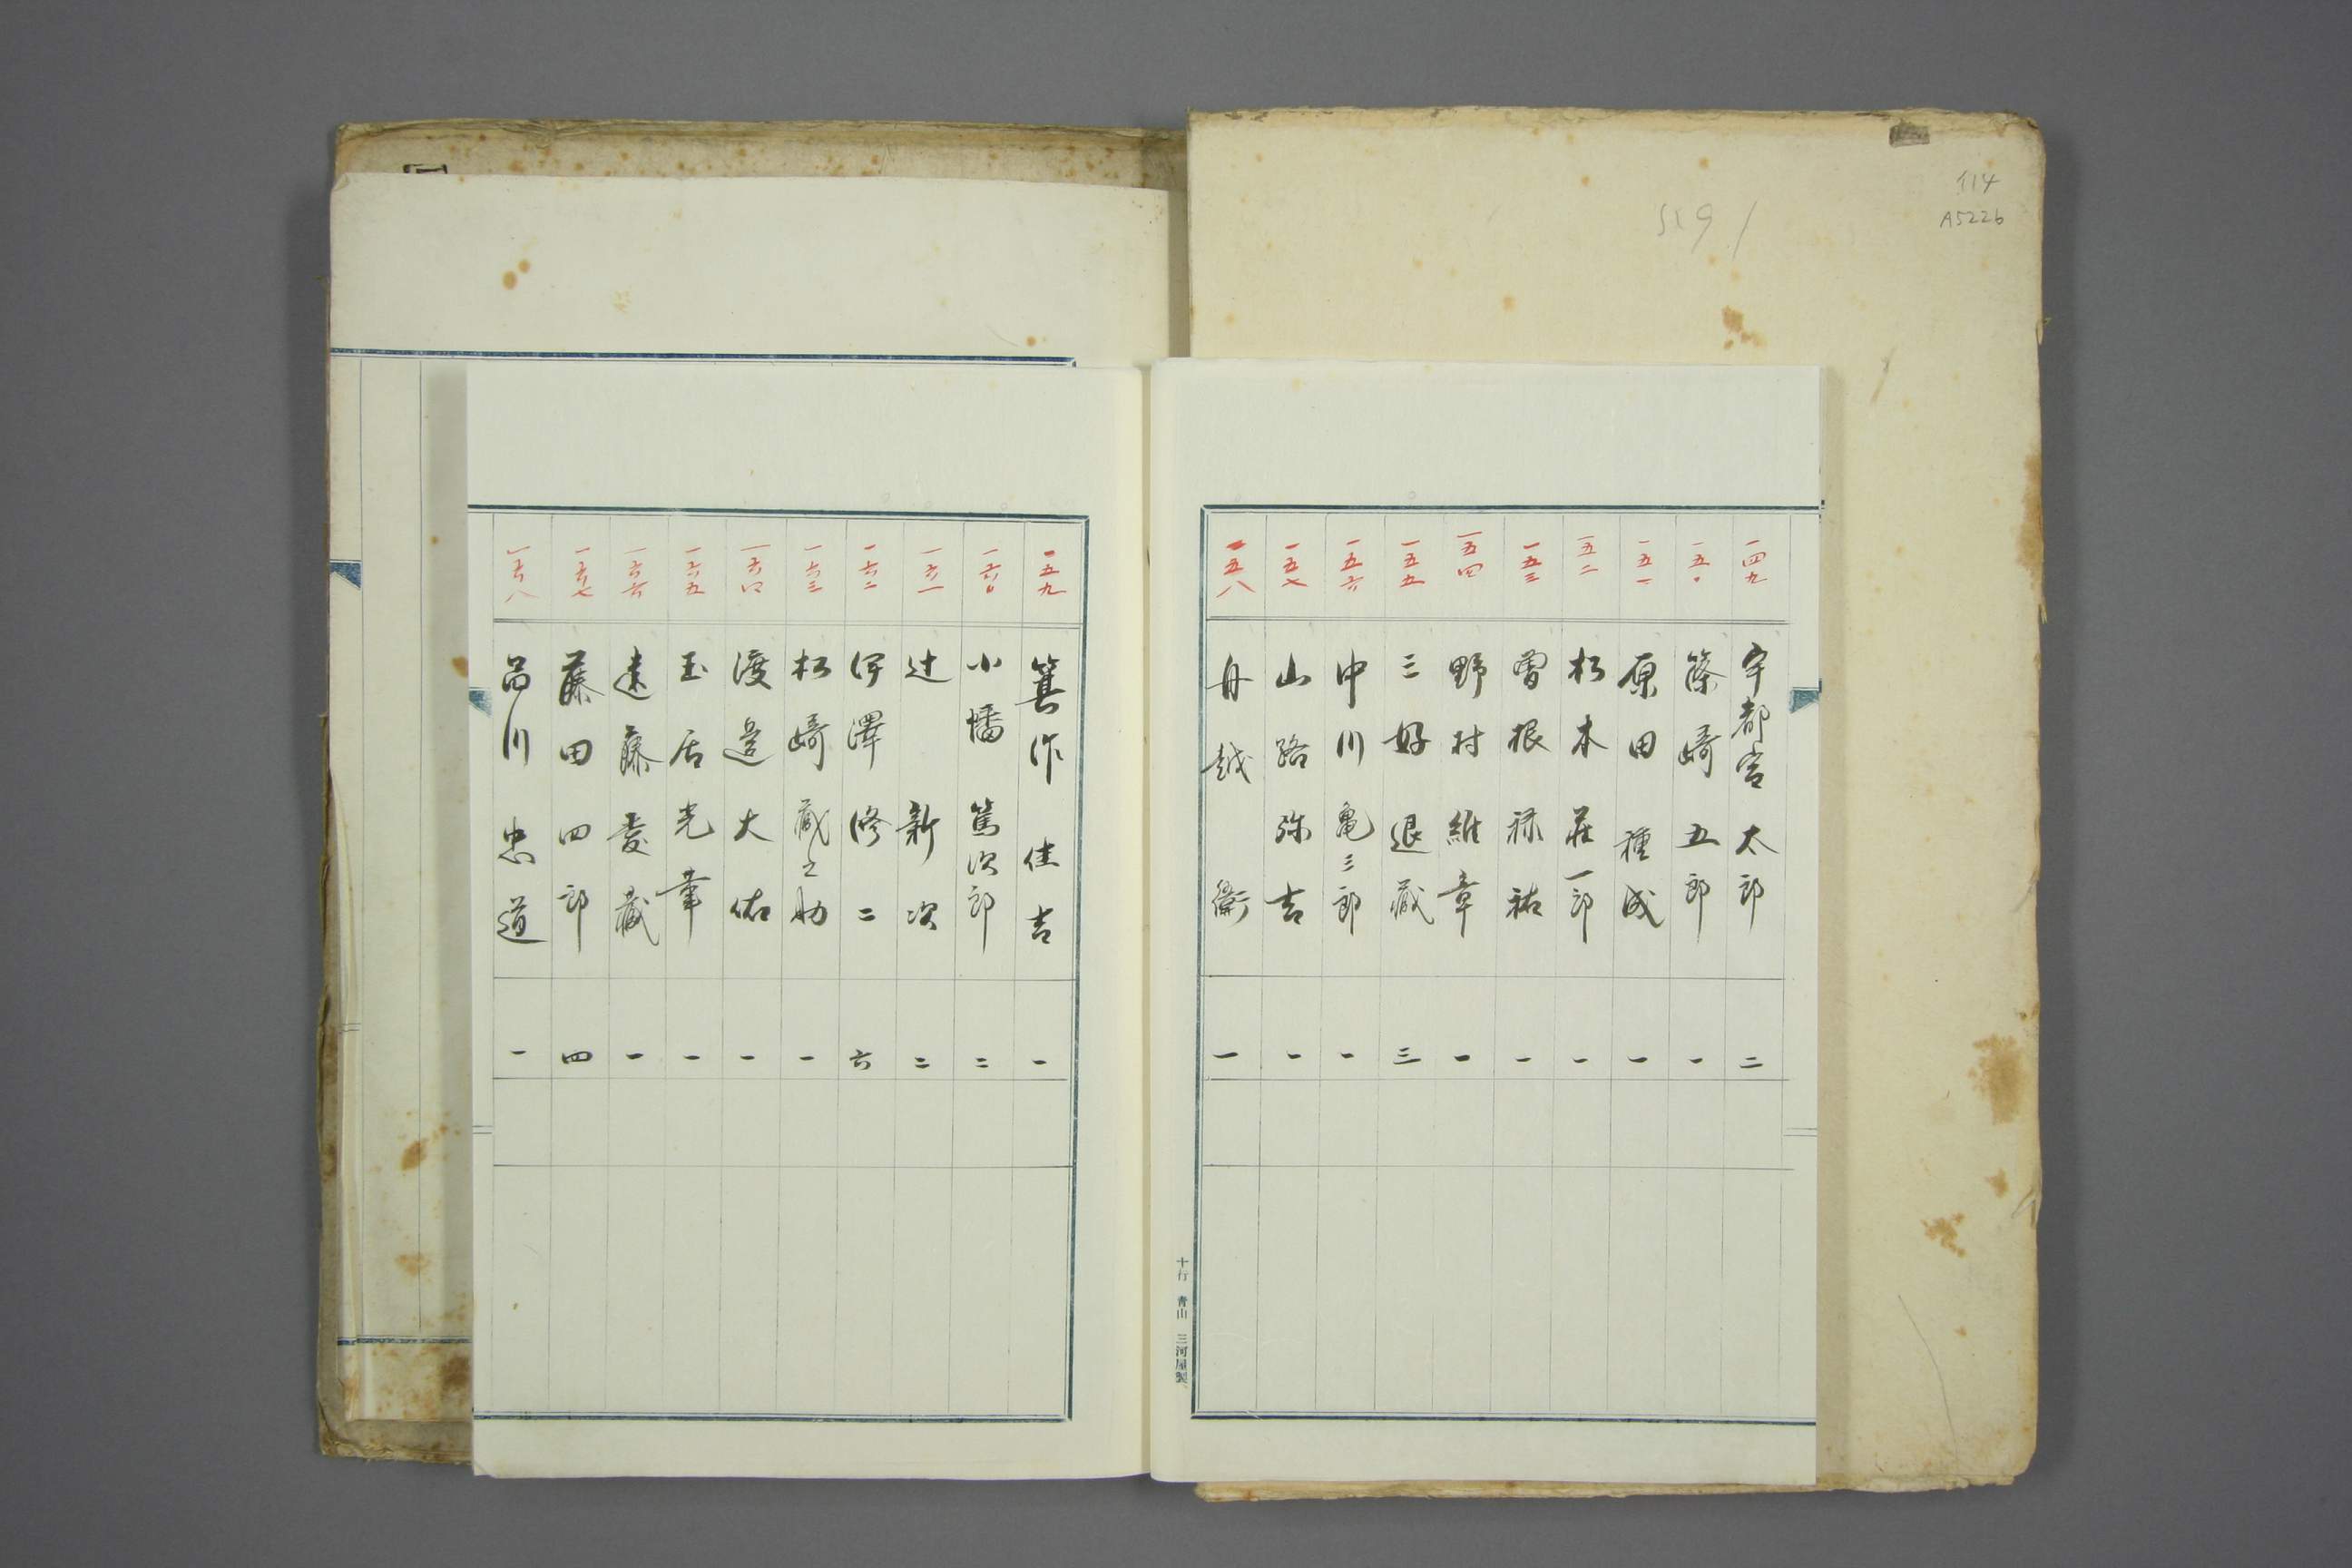 114
A5226
一四九 宇都宮太郎 二
一五〇 篠崎五郎 一
一五一 原田種成 一
一五二 松本荘一郎 一
一五三 曽根禄祐 一
一五四 野村維章 一
一五五 三好退蔵 三
一五六 中川亀三郎 一
一五七 山路弥吉 一
一五八 舟越衛 一
十行 青山 三河屋製
一五九 箕作佳吉 一
一六〇 小幡篤次郎 二
一六一 辻新次 二
一六二 伊澤修二 六
一六三 松崎蔵之助 一
一六四 渡邉大佑 一
一六五 玉居光華 一
一六六 遠藤慶蔵 一
一六七 藤田四郎 四
一六八 品川忠道 一